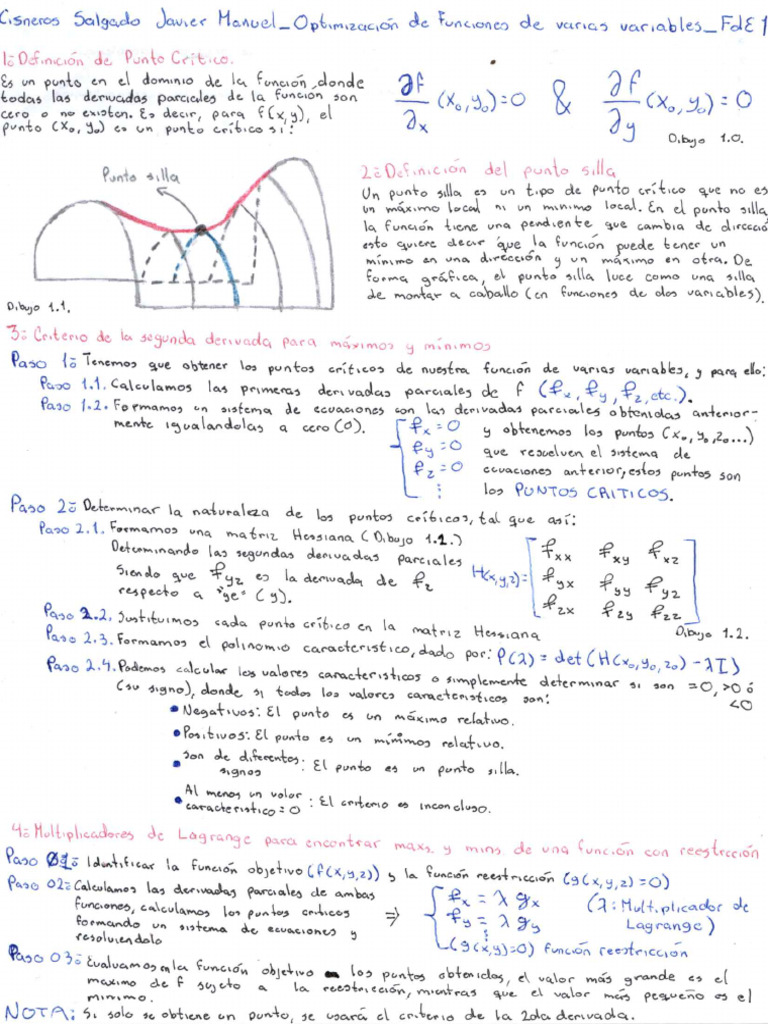 Cisneros Salgado Javier Manuel_Optimización de Funciones de varias variables_FdE1
1:Definición de Punto Crítico.
Es un punto en el dominio de la función, donde
todas las derivadas parciales de la función son
cero o no existen. Es decir, para f(x,y), el
punto (x₀, y₀) es un punto crítico si:
∂f/∂x (x₀,y₀)=0 & ∂f/∂y (x₀,y₀) = 0
Dibujo 1.0.
Punto silla
Dibujo 1.1.
2:Definición del punto silla
Un punto silla es un tipo de punto crítico que no es
un máximo local ni un minimo local. En el punto silla
la función tiene una pendiente que cambia de direcció
esto quiere decir que la función puede tener un
mínimo en una dirección y un máximo en otra. De
forma gráfica, el punto silla luce como una silla
de montar a caballo (en funciones de dos variables).
3: Criterio de la segunda derivada para máximos y mínimos
Paso 1: Tenemos que obtener los puntos críticos de nuestra función de varias variables, y para ello:
Paso 1.1. Calculamos las primeras derivadas parciales de f (fx, fy, fz, etc.).
Paso 1.2. Formamos un sistema de ecuaciones con las derivadas parciales obtenidas anterior-
mente igualandolas a cero (0).
fx = 0
fy = 0
fz = 0
⋮
y obtenemos los puntos (x₀, y₀, z₀...)
que resuelven el sistema de
ecuaciones anterior, estos puntos son
los PUNTOS CRITICOS.
Paso 2: Determinar la naturaleza de los puntos críticos, tal que así:
Paso 2.1. Formamos una matriz Hessiana (Dibujo 1.2.)
Determinando las segundas derivadas parciales
siendo que fyz es la derivada de fz
respecto a "ye" (y).
H(x,y,z)=
fxx fxy fxz
fyx fyy fyz
fzx fzy fzz
Dibujo 1.2.
Paso 2.2. Sustituimos cada punto crítico en la matriz Hessiana
Paso 2.3. Formamos el polinomio característico, dado por: P(λ) = det(H(x₀,y₀,z₀) - λI)
Paso 2.4. Podemos calcular los valores caracteristicos o simplemente determinar si son =0, >0 ó
<0
(su signo), donde si todos los valores caracteristicos son:
• Negativos: El punto es un máximo relativo.
• Positivos: El punto es un mínimos relativo.
• Son de diferentes signos : El punto es un punto silla.
• Al menos un valor caracteristico = 0 : El criterio es inconcluso.
4: Multiplicadores de Lagrange para encontrar maxs. y mins de una función con reestricción
Paso 01: Identificar la función objetivo (f(x,y,z)) y la función reestricción (g(x,y,z)=0)
Paso 02: Calculamos las derivadas parciales de ambas
funciones, calculamos los puntos criticos
formando un sistema de ecuaciones y
resolviendolo
⇒
fx = λ gx
fy = λ gy
⋮
(g(x,y)=0) función reestricción
(λ: Multiplicador de
Lagrange)
Paso 03: Evaluamos en la función objetivo los puntos obtenidos, el valor más grande es el
maximo de f sujeto a la reestricción, mientras que el valor más pequeño es el
minimo.
NOTA: Si solo se obtiene un punto, se usará el criterio de la 2da derivada.